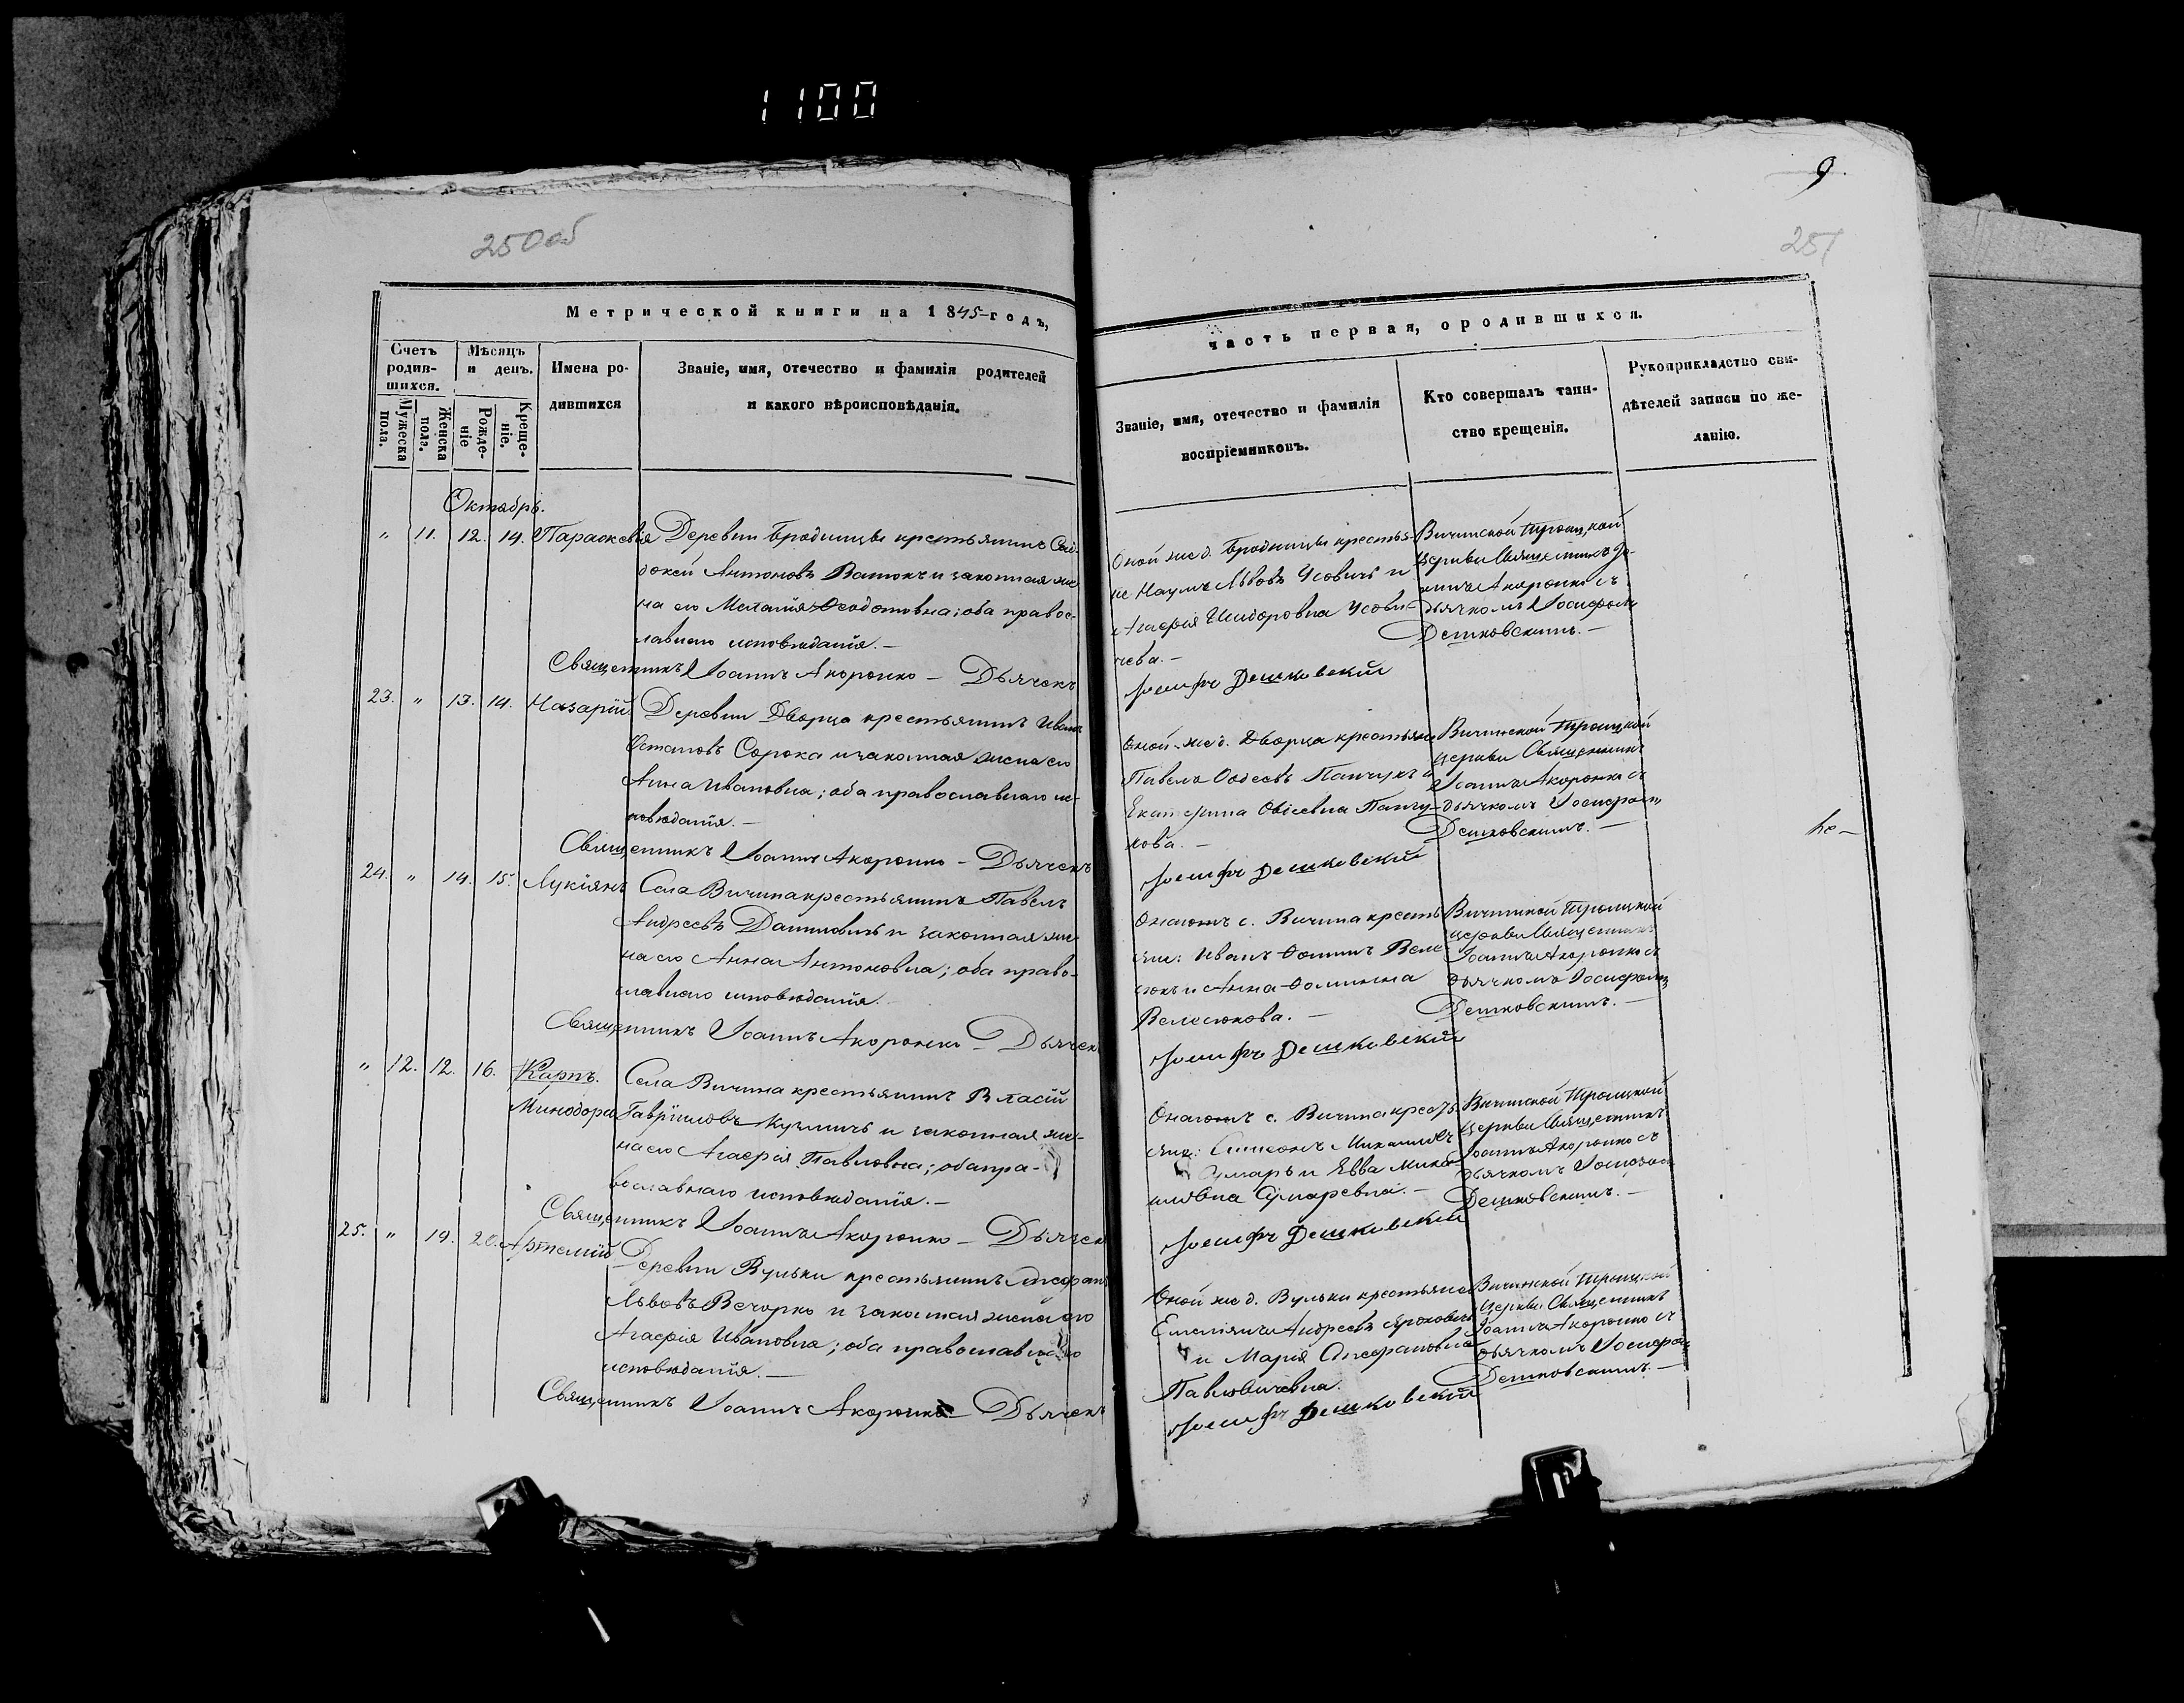 1100
250 об
Метрической книги на 1845 годъ,
Счетъ родив-
шихся.
Мѣсяцъ
и день.
Имена ро-
дившихся
Званіе, имя, отечество и фамилія родителей
и какого вѣроисповѣданія.
Мужеска
пола.
Женска
пола.
Рожде-
ніе
Креще-
ніе.
Октябрь.
" 11. 12. 14. Параскевія Деревни Бродницы крестьянинъ
Антоновъ Ватокъ и законная же-
на его Меланія Ѳеодотовна; оба правос-
лавнаго исповѣданія. —
Священникъ Іоаннъ Акоронко — Дьячекъ
23. " 13. 14. Назарій. Деревни Дворца крестьянинъ Иванъ
Остаповъ Сорока и законная жена его
Анна Ивановна; оба православнаго ис-
повѣданія. —
Священникъ Іоаннъ Акоронко — Дьячекъ
24. " 14. 15. Лукіянъ Села Вичина крестьянинъ Павелъ
Андреевъ Даниловичъ и законная же-
на его Анна Антоновна; оба право-
славнаго исповѣданія. —
Священникъ Іоаннъ Акоронко — Дьячекъ
" 12. 12. 16. Карпъ. Села Вичина крестьянинъ Власій
Минодора Гавріиловъ Кузмичъ и законная же-
на его Агафія Павловна; оба пра-
вославнаго исповѣданія. —
Священникъ Іоаннъ Акоронко — Дьячекъ
25. " 19. 20. Артемій Деревни Вульки крестьянинъ
Львовъ Вечорко и законная жена его
Агафія Ивановна; оба православнаго
исповѣданія. —
Священникъ Іоаннъ Акоронко — Дьячекъ
9
251
часть первая, о родившихся.
Званіе, имя, отечество и фамилія
воспріемниковъ.
Кто совершалъ таин-
ство крещенія.
Рукоприкладство сви-
дѣтелей записи по же-
ланію.
Оной же д. Бродницы крестья-
не Наумъ Львовъ Усовичъ и
Агафія Исидоровна Усови-
чева. —
Вичинской Троицкой
церкви Священникъ Іо-
аннъ Акоронко съ
дьячкомъ Іосифомъ
Дешковскимъ. —
Іосифъ Дешковскій
Оной же д. Дворца крестьяне
Павелъ Панчукъ и
Екатерина Панчу-
кова. —
Вичинской Троицкой
церкви Священникъ
Іоаннъ Акоронко съ
дьячкомъ Іосифомъ
Дешковскимъ. —
Іосифъ Дешковскій
Онагожъ с. Вичина кресть-
яне: Иванъ Ѳоминъ
и Анна Ѳомина
Велесюкова. —
Вичинской Троицкой
церкви Священникъ
Іоаннъ Акоронко съ
дьячкомъ Іосифомъ
Дешковскимъ. —
Іосифъ Дешковскій
Онагожъ с. Вичина кресть-
яне: Симеонъ
и Евва
Вичинской Троицкой
церкви Священникъ
Іоаннъ Акоронко съ
дьячкомъ
Дешковскимъ. —
Іосифъ Дешковскій
Оной же д. Вульки крестьяне
Емеліянъ Андреевъ
и Марія
Павловичевна.
Вичинской Троицкой
церкви Священникъ
Іоаннъ Акоронко съ
дьячкомъ Іосифомъ
Дешковскимъ. —
Іосифъ Дешковскій